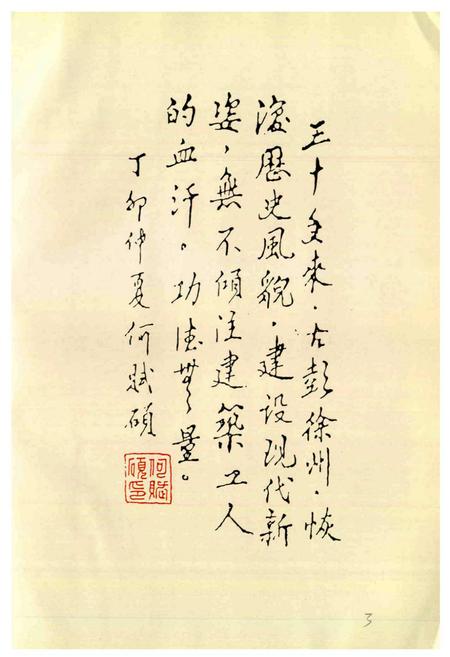 三十多来，古彭徐州，恢
复歷史風貌，建设现代新
姿，無不傾注建築工人
的血汗。功德無量。
丁卯仲夏何賦碩
何賦
碩印
3